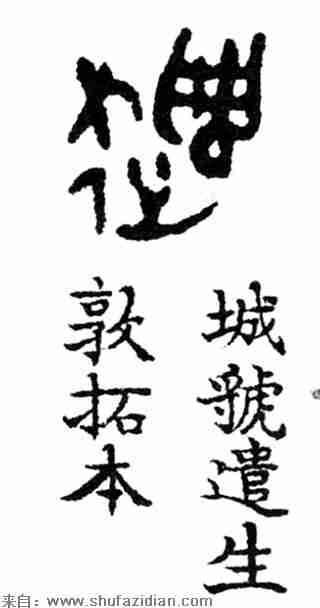 城虢遣生
敦拓本
来自：www.shufazidian.com